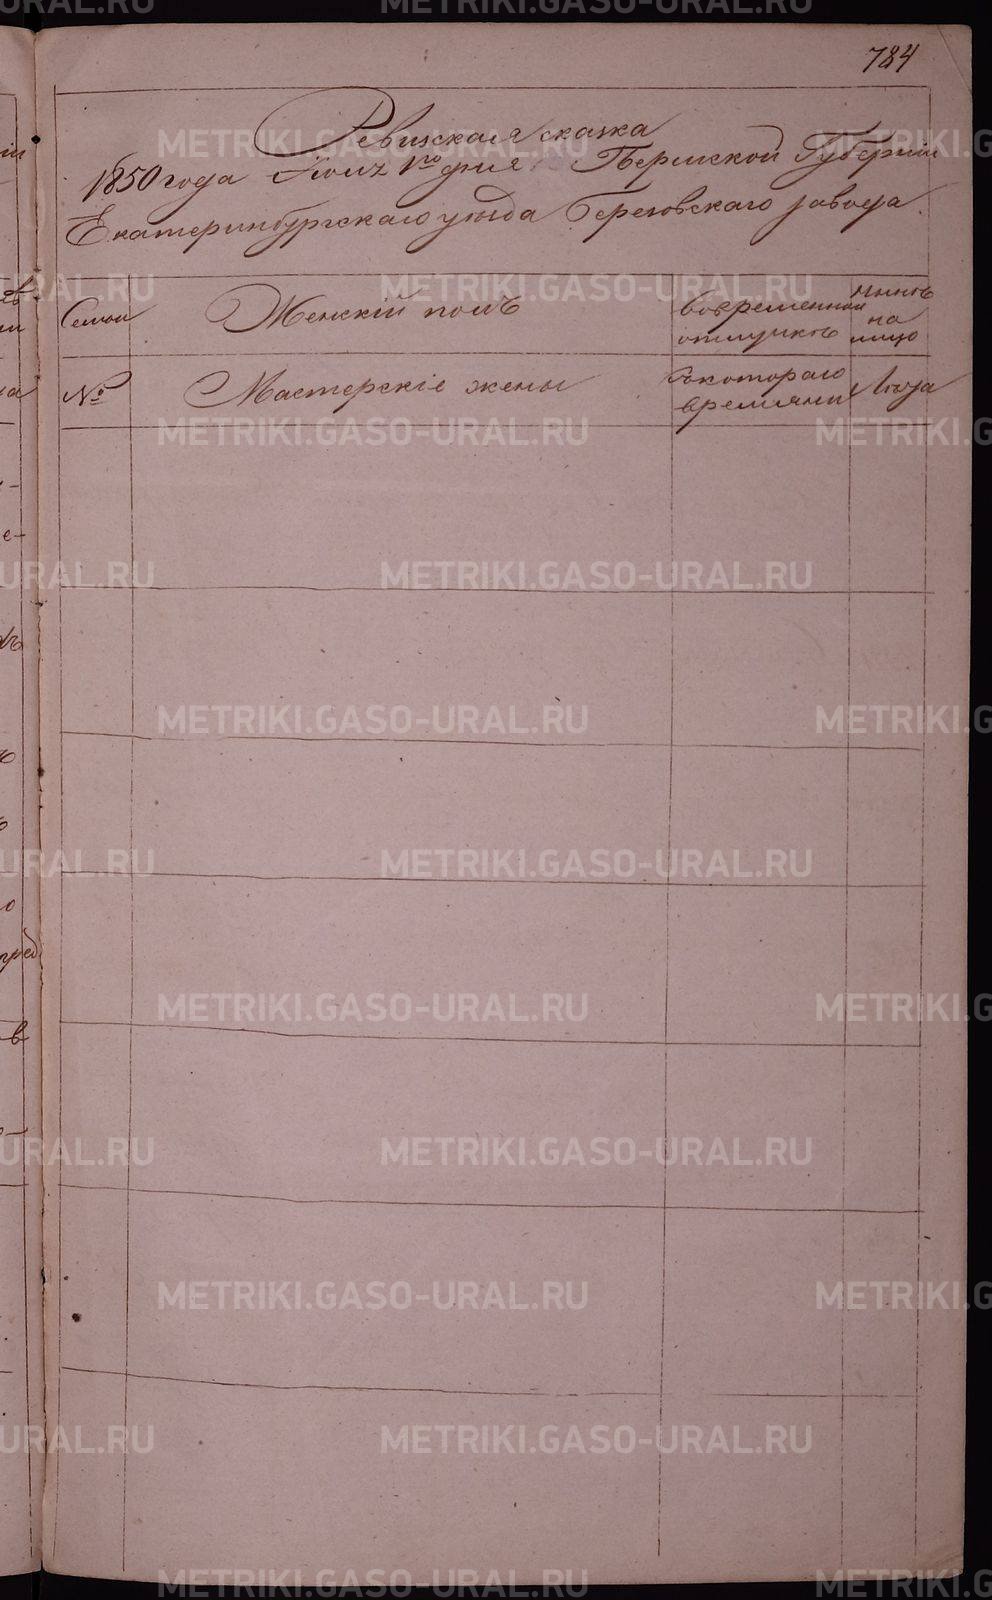 784
Ревизская сказка
1850 года Июня 1го дня Пермской Губернии
Екатеринбургскаго уѣзда Березовскаго завода
Семьи
Женскій полъ
Во временной отлучкѣ
Нынѣ на лицо
№
Мастерскіе жены
Съ котораго времяни
Лѣта
METRIKI.GASO-URAL.RU